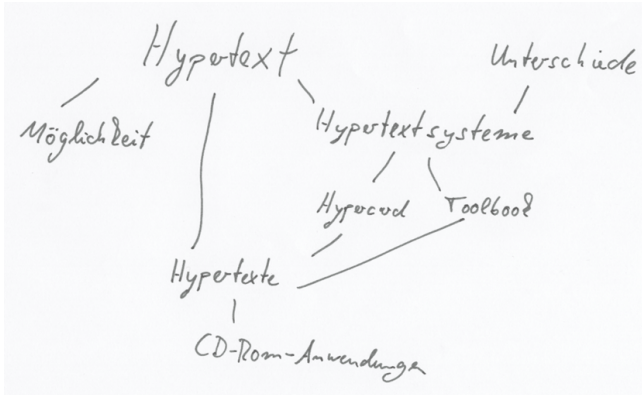 Hypertext
Unterschiede
Möglichkeit
Hypertextsysteme
Hypercard
Toolbook
Hypertexte
CD-Rom-Anwendungen